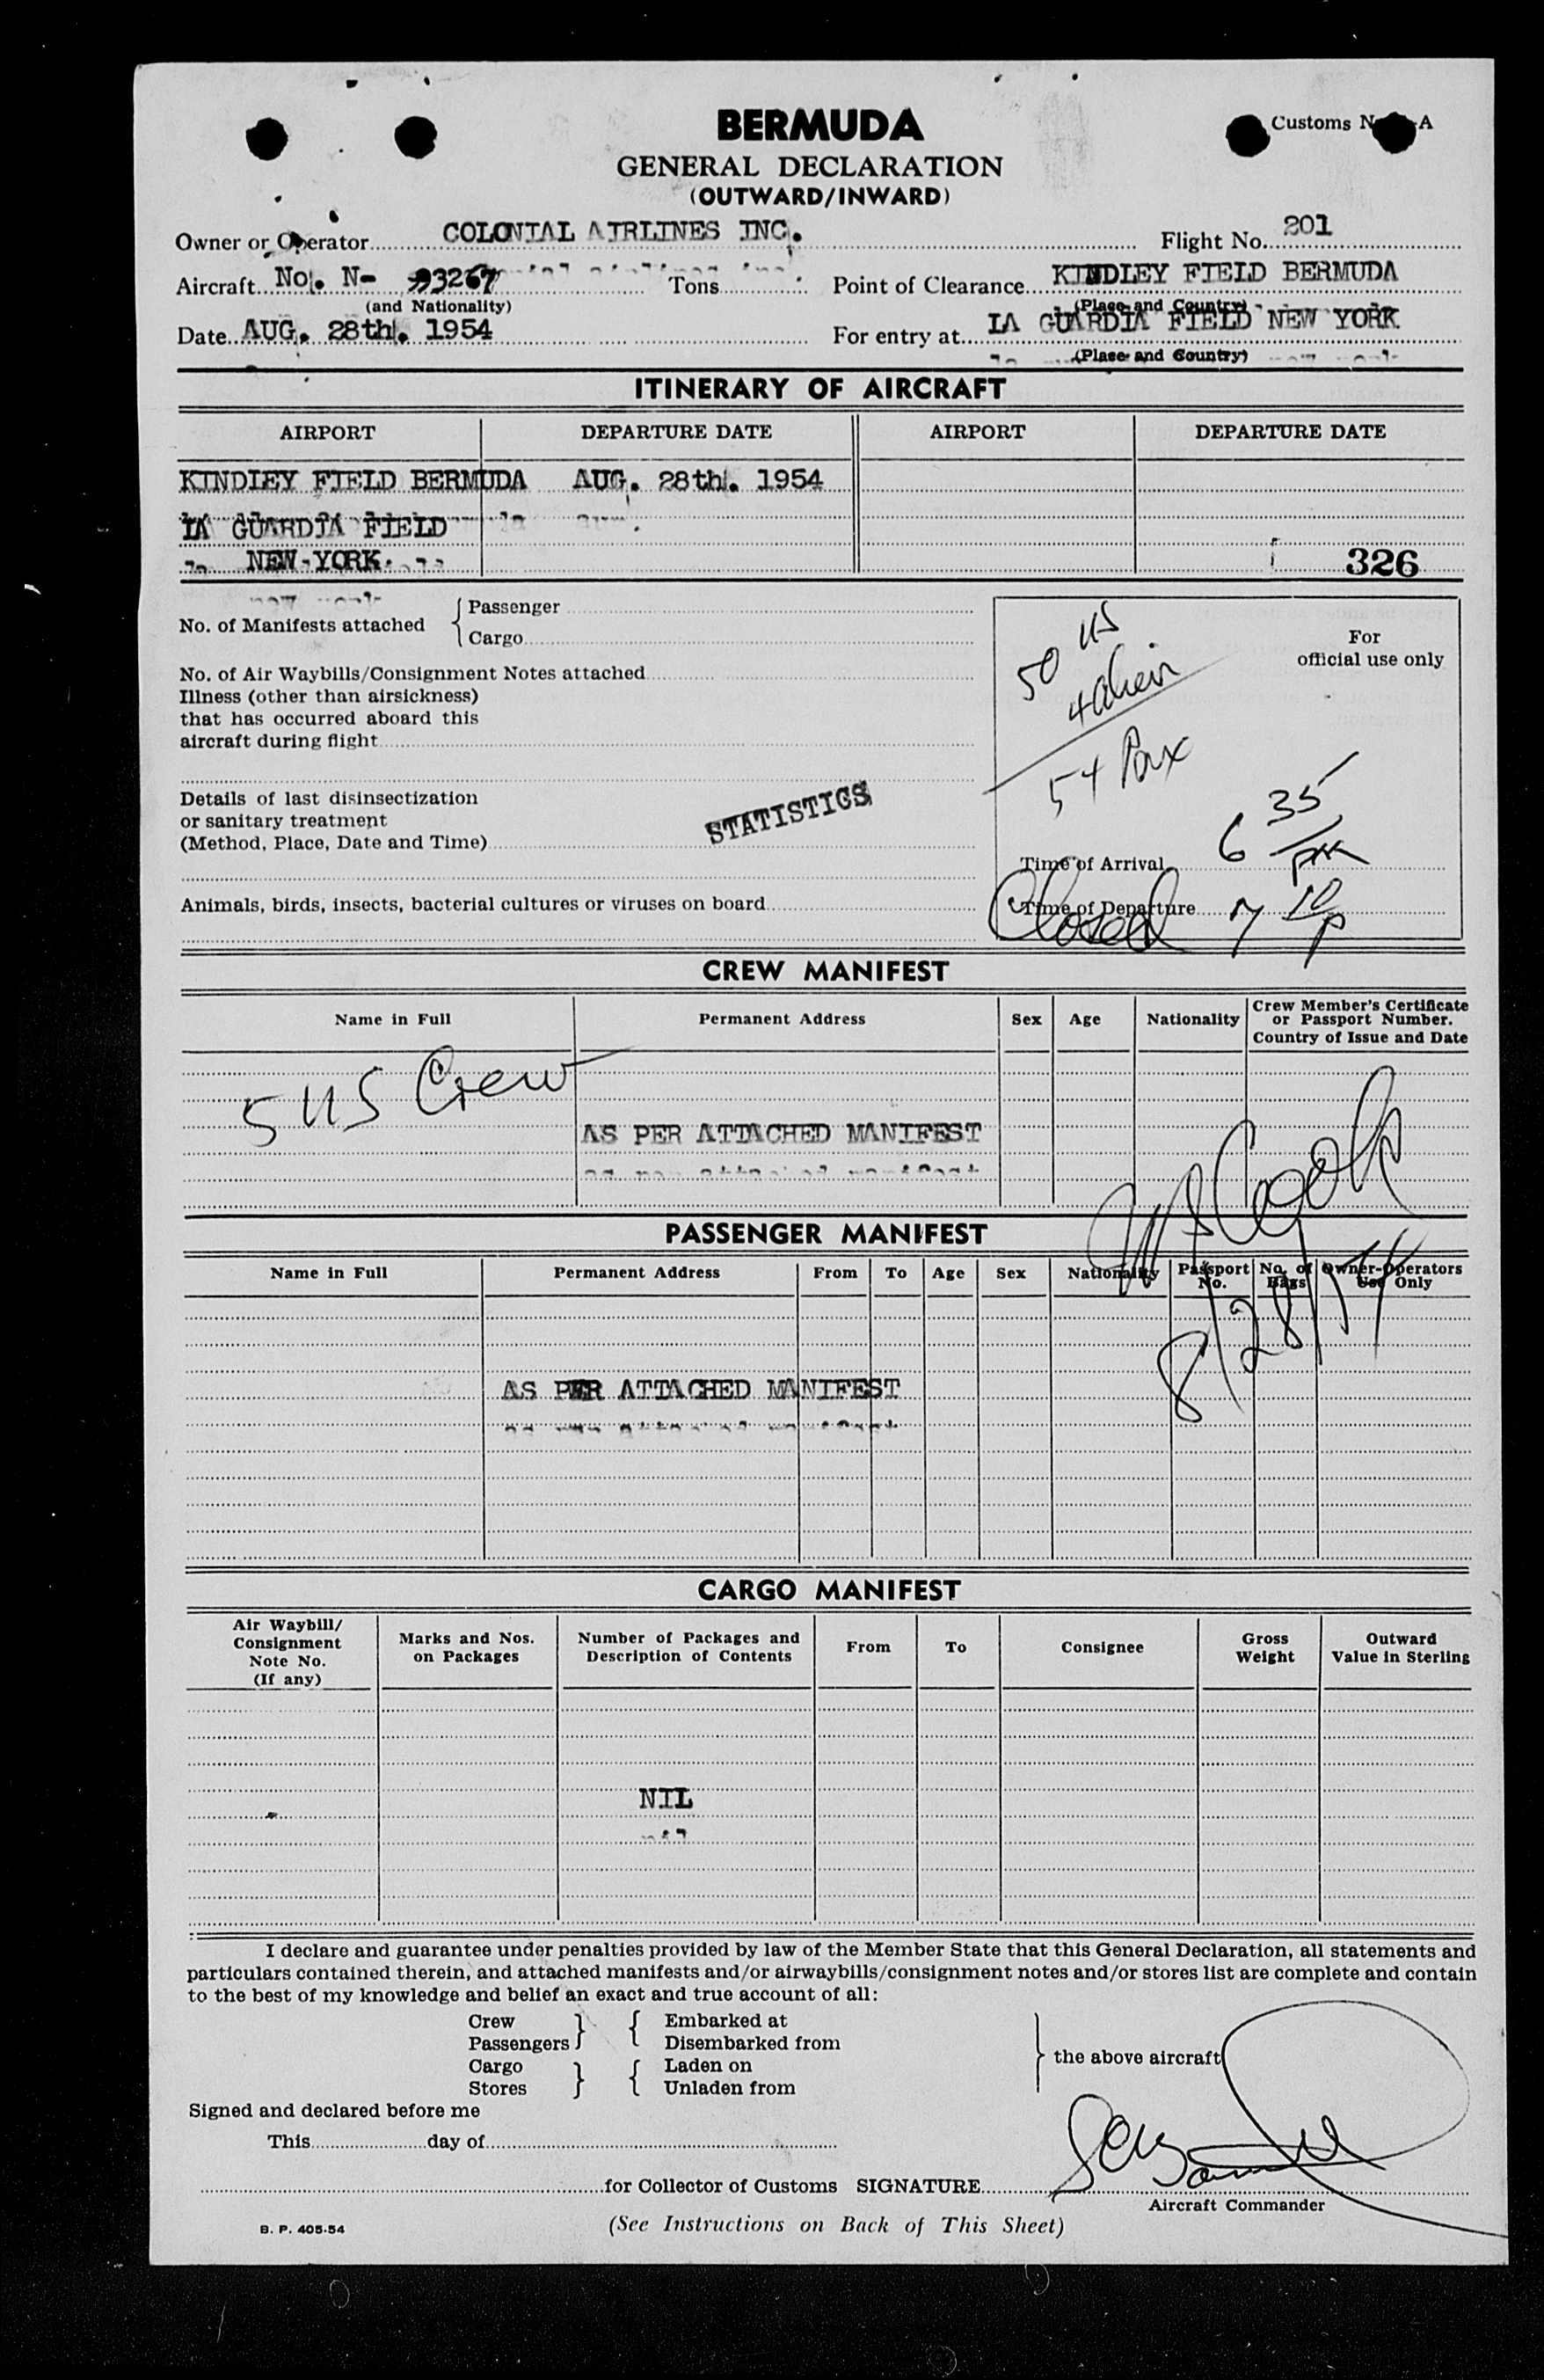 BERMUDA
Customs N A
GENERAL DECLARATION
(OUTWARD/INWARD)
Owner or Operator COLONIAL AIRLINES INC. Flight No. 201
Aircraft No. N- 93267 Tons Point of Clearance KINDLEY FIELD BERMUDA
(and Nationality) (Place and Country)
Date AUG. 28th. 1954 For entry at LA GUARDIA FIELD NEW YORK
(Place and Country)
ITINERARY OF AIRCRAFT
AIRPORT DEPARTURE DATE AIRPORT DEPARTURE DATE
KINDLEY FIELD BERMUDA AUG. 28th. 1954
LA GUARDIA FIELD
NEW-YORK. 326
No. of Manifests attached { Passenger
Cargo
50 US
4 alien
54 Pax
For
official use only
No. of Air Waybills/Consignment Notes attached
Illness (other than airsickness)
that has occurred aboard this
aircraft during flight
Details of last disinsectization
or sanitary treatment
(Method, Place, Date and Time)
STATISTICS
Time of Arrival 6 35 PM
Animals, birds, insects, bacterial cultures or viruses on board
Time of Departure 7 10 P
Closed
CREW MANIFEST
Name in Full Permanent Address Sex Age Nationality Crew Member's Certificate
or Passport Number.
Country of Issue and Date
5 US Crew
AS PER ATTACHED MANIFEST
PASSENGER MANIFEST
Name in Full Permanent Address From To Age Sex Nationality Passport No. No. of Bags Owner-Operators Use Only
8/28/54
AS PER ATTACHED MANIFEST
CARGO MANIFEST
Air Waybill/
Consignment
Note No.
(If any)
Marks and Nos.
on Packages
Number of Packages and
Description of Contents
From To Consignee
Gross
Weight
Outward
Value in Sterling
NIL
I declare and guarantee under penalties provided by law of the Member State that this General Declaration, all statements and
particulars contained therein, and attached manifests and/or airwaybills/consignment notes and/or stores list are complete and contain
to the best of my knowledge and belief an exact and true account of all:
Crew } { Embarked at
Passengers Disembarked from
Cargo } { Laden on
Stores Unladen from
} the above aircraft
Signed and declared before me
This day of
for Collector of Customs SIGNATURE
Aircraft Commander
B. P. 405-54 (See Instructions on Back of This Sheet)